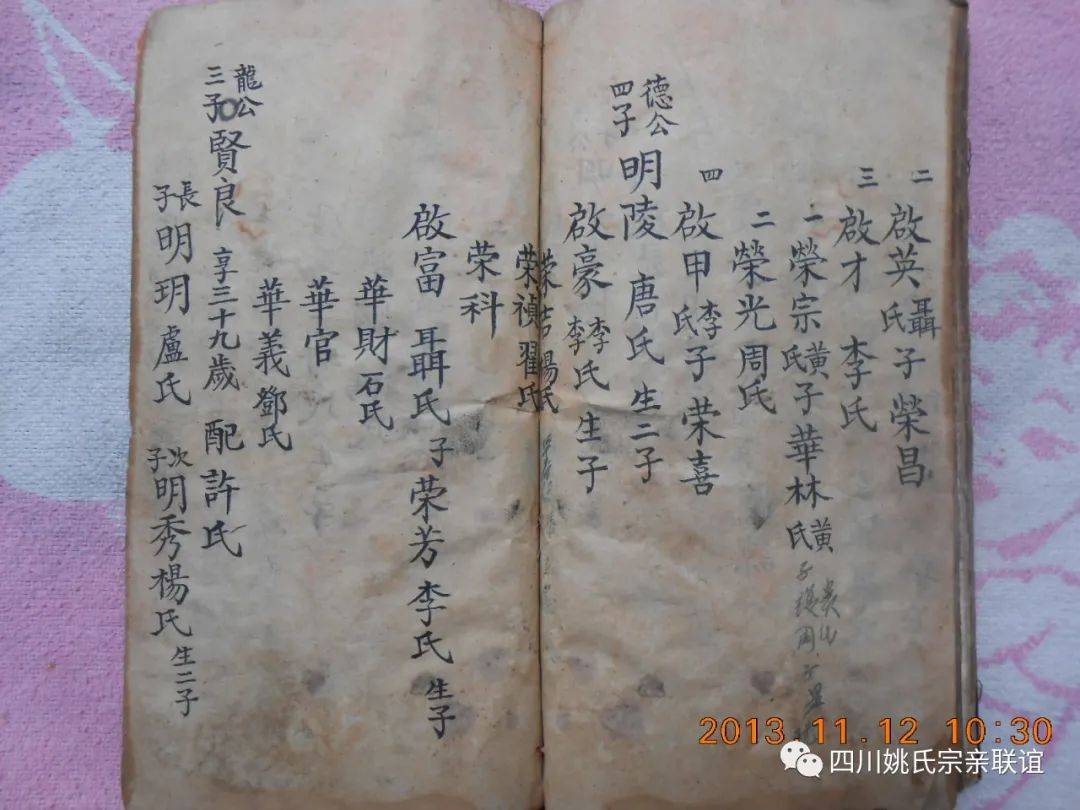 二 啟英 聶氏 子榮昌
三 啟才 李氏
一 榮宗 黃氏 子華林 黃氏
二 榮光 周氏
四 啟甲 李氏 子荣喜
德公四子 明陵 唐氏 生二子
啟豪 李氏 生子
荣吉 楊氏
荣禎 翟氏
荣科
啟富 聶氏 子荣芳 李氏 生子
華財 石氏
華官
華義 鄧氏
龍公三子 賢良 享三十九歲 配許氏
長子 明玥 盧氏 次子 明秀 楊氏 生二子
2013.11.12 10:30
四川姚氏宗亲联谊